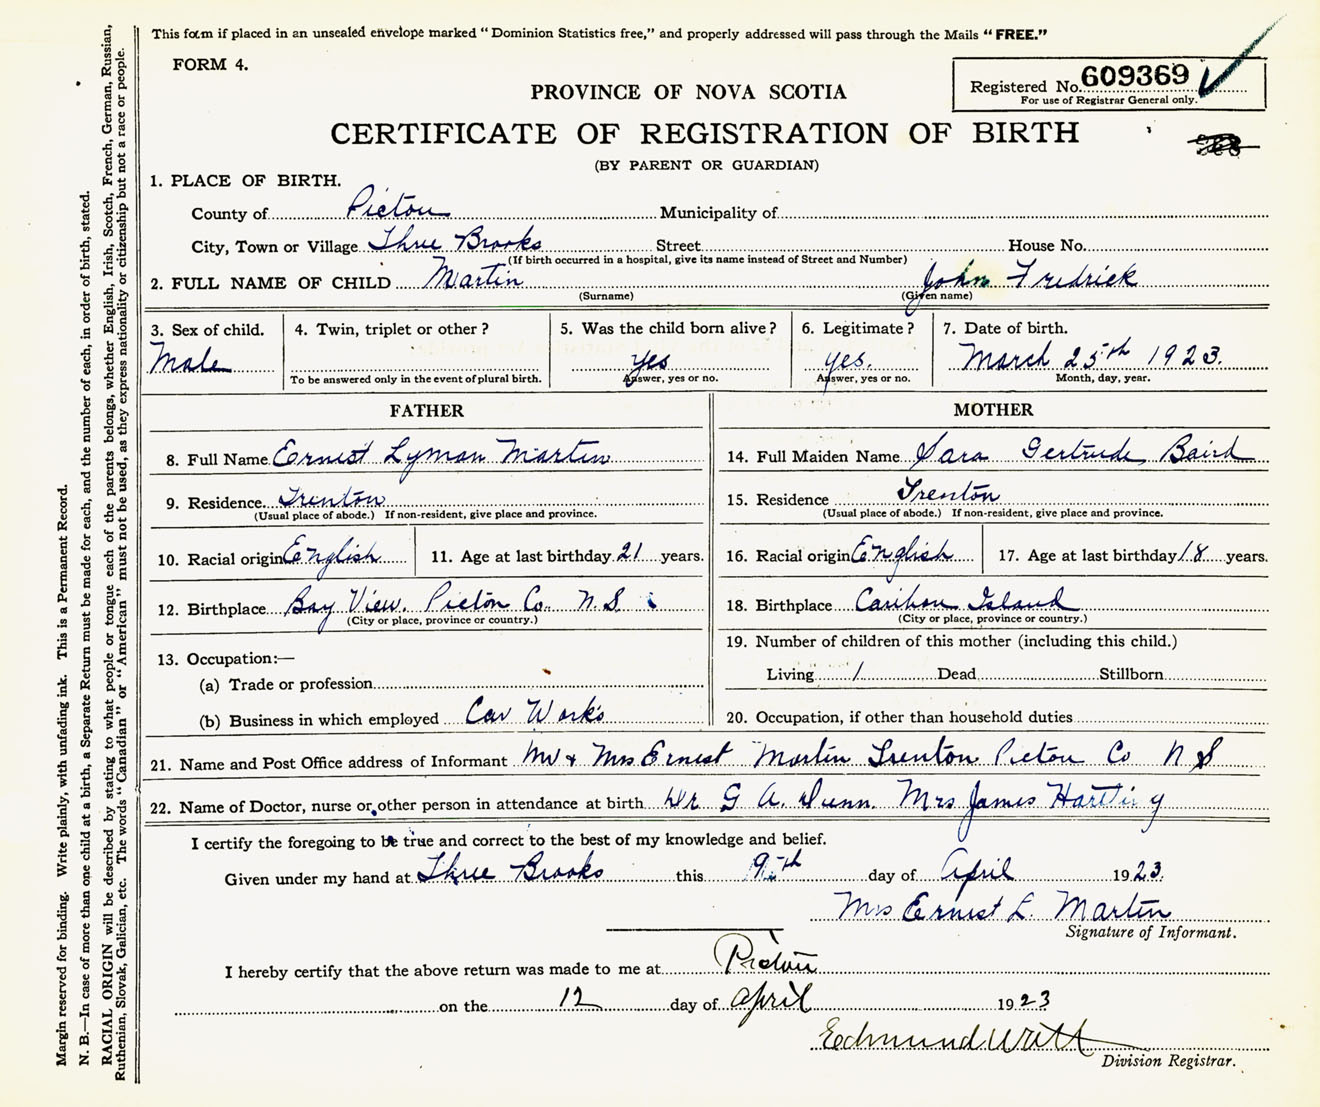 This form if placed in an unsealed envelope marked "Dominion Statistics free," and properly addressed will pass through the Mails "FREE."
FORM 4.
Registered No. 609369
For use of Registrar General only.
PROVINCE OF NOVA SCOTIA
CERTIFICATE OF REGISTRATION OF BIRTH
(BY PARENT OR GUARDIAN)
1. PLACE OF BIRTH.
County of Pictou Municipality of
City, Town or Village Three Brooks Street House No.
(If birth occurred in a hospital, give its name instead of Street and Number)
2. FULL NAME OF CHILD Martin John Fredrick
(Surname) (Given name)
3. Sex of child. 4. Twin, triplet or other? 5. Was the child born alive? 6. Legitimate? 7. Date of birth.
Male yes yes. March 25th 1923.
To be answered only in the event of plural birth. Answer, yes or no. Answer, yes or no. Month, day, year.
FATHER MOTHER
8. Full Name Ernest Lyman Martin 14. Full Maiden Name Sara Gertrude Baird
9. Residence. Trenton 15. Residence Trenton
(Usual place of abode.) If non-resident, give place and province. (Usual place of abode.) If non-resident, give place and province.
10. Racial origin English 11. Age at last birthday 21 years. 16. Racial origin English 17. Age at last birthday 18 years.
12. Birthplace Bay View. Pictou Co. N.S 18. Birthplace Caribou Island
(City or place, province or country.) (City or place, province or country.)
13. Occupation:— 19. Number of children of this mother (including this child.)
(a) Trade or profession Living 1 Dead Stillborn
(b) Business in which employed Car Works 20. Occupation, if other than household duties
21. Name and Post Office address of Informant Mr & Mrs Ernest Martin Trenton Pictou Co N S
22. Name of Doctor, nurse or other person in attendance at birth Dr G A. Dunn. Mrs James
I certify the foregoing to be true and correct to the best of my knowledge and belief.
Given under my hand at Three Brooks this day of April 1923.
Mrs Ernest L. Martin
Signature of Informant.
I hereby certify that the above return was made to me at Pictou
on the 12 day of April 1923
Edmund
Division Registrar.
Margin reserved for binding. Write plainly, with unfading ink. This is a Permanent Record.
N. B.—In case of more than one child at a birth, a Separate Return must be made for each, and the number of each, in order of birth, stated.
RACIAL ORIGIN will be described by stating to what people or tongue each of the parents belongs, whether English, Irish, Scotch, French, German, Russian,
Ruthenian, Slovak, Galician, etc. The words "Canadian" or "American" must not be used, as they express nationality or citizenship but not a race or people.